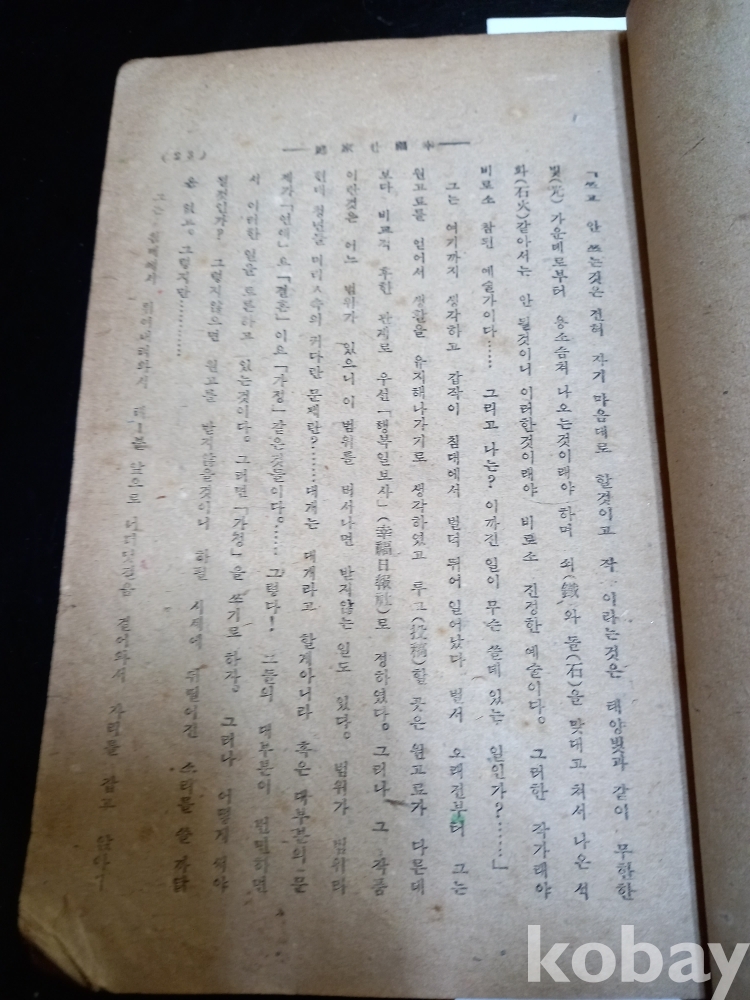 「쓰고 안 쓰는것은 전혀 자기 마음대로 할것이고 작 이라는것은 태양빛과 같이 무한한
빛(光) 가운데로부터 용소슴쳐 나오는것이래야 하며 쇠(鐵)와 돌(石)을 맞대고 쳐서 나온 석
화(石火)같아서는 안 될것이니 이러한것이래야 비로소 진정한 예술이다。 그러한 작가래야
비로소 참된 예술가이다…… 그리고 나는? 이까진 일이 무슨 쓸데 있는 일인가?……」
그는 여기까지 생각하고 갑작이 침대에서 벌덕 뛰어 일어났다 벌서 오래전부터 그는
원고료를 얻어서 생활을 유지해나가기로 생각하였고 투고(投稿)할 곳은 원고료가 다른데
보다 비교적 후한 관계로 우선「행복일보사」(幸福日報社)로 정하였다。그러나 그 작품
이란것은 어느 범위가 있으니 이 범위를 버서나면 받지않는 일도 있다。 범위가 범위라
청년들 머리스속의 커다란 문제란?……대개는 대개라고 할게아니라 혹은 대부분의 문
제가「연애」요「결혼」이요「가정」같은것들이다。…… 그렇다! 그들의 대부분이 번민하면
서 이러한 일을 토론하고 있는것이다。그러면「가정」을 쓰기로 하자。 그러나 어떻게 써야
될것인가? 그렇지않으면 원고를 받지않을것이니 하필 시세에 뒤떨어진 소리를 쓸 까닭
은 없고。그렇지만…………
그는 침대에서 뛰어내려와서 테ー블 앞으로 걸어와서 자리를 잡고 앉아
(23)
kobay